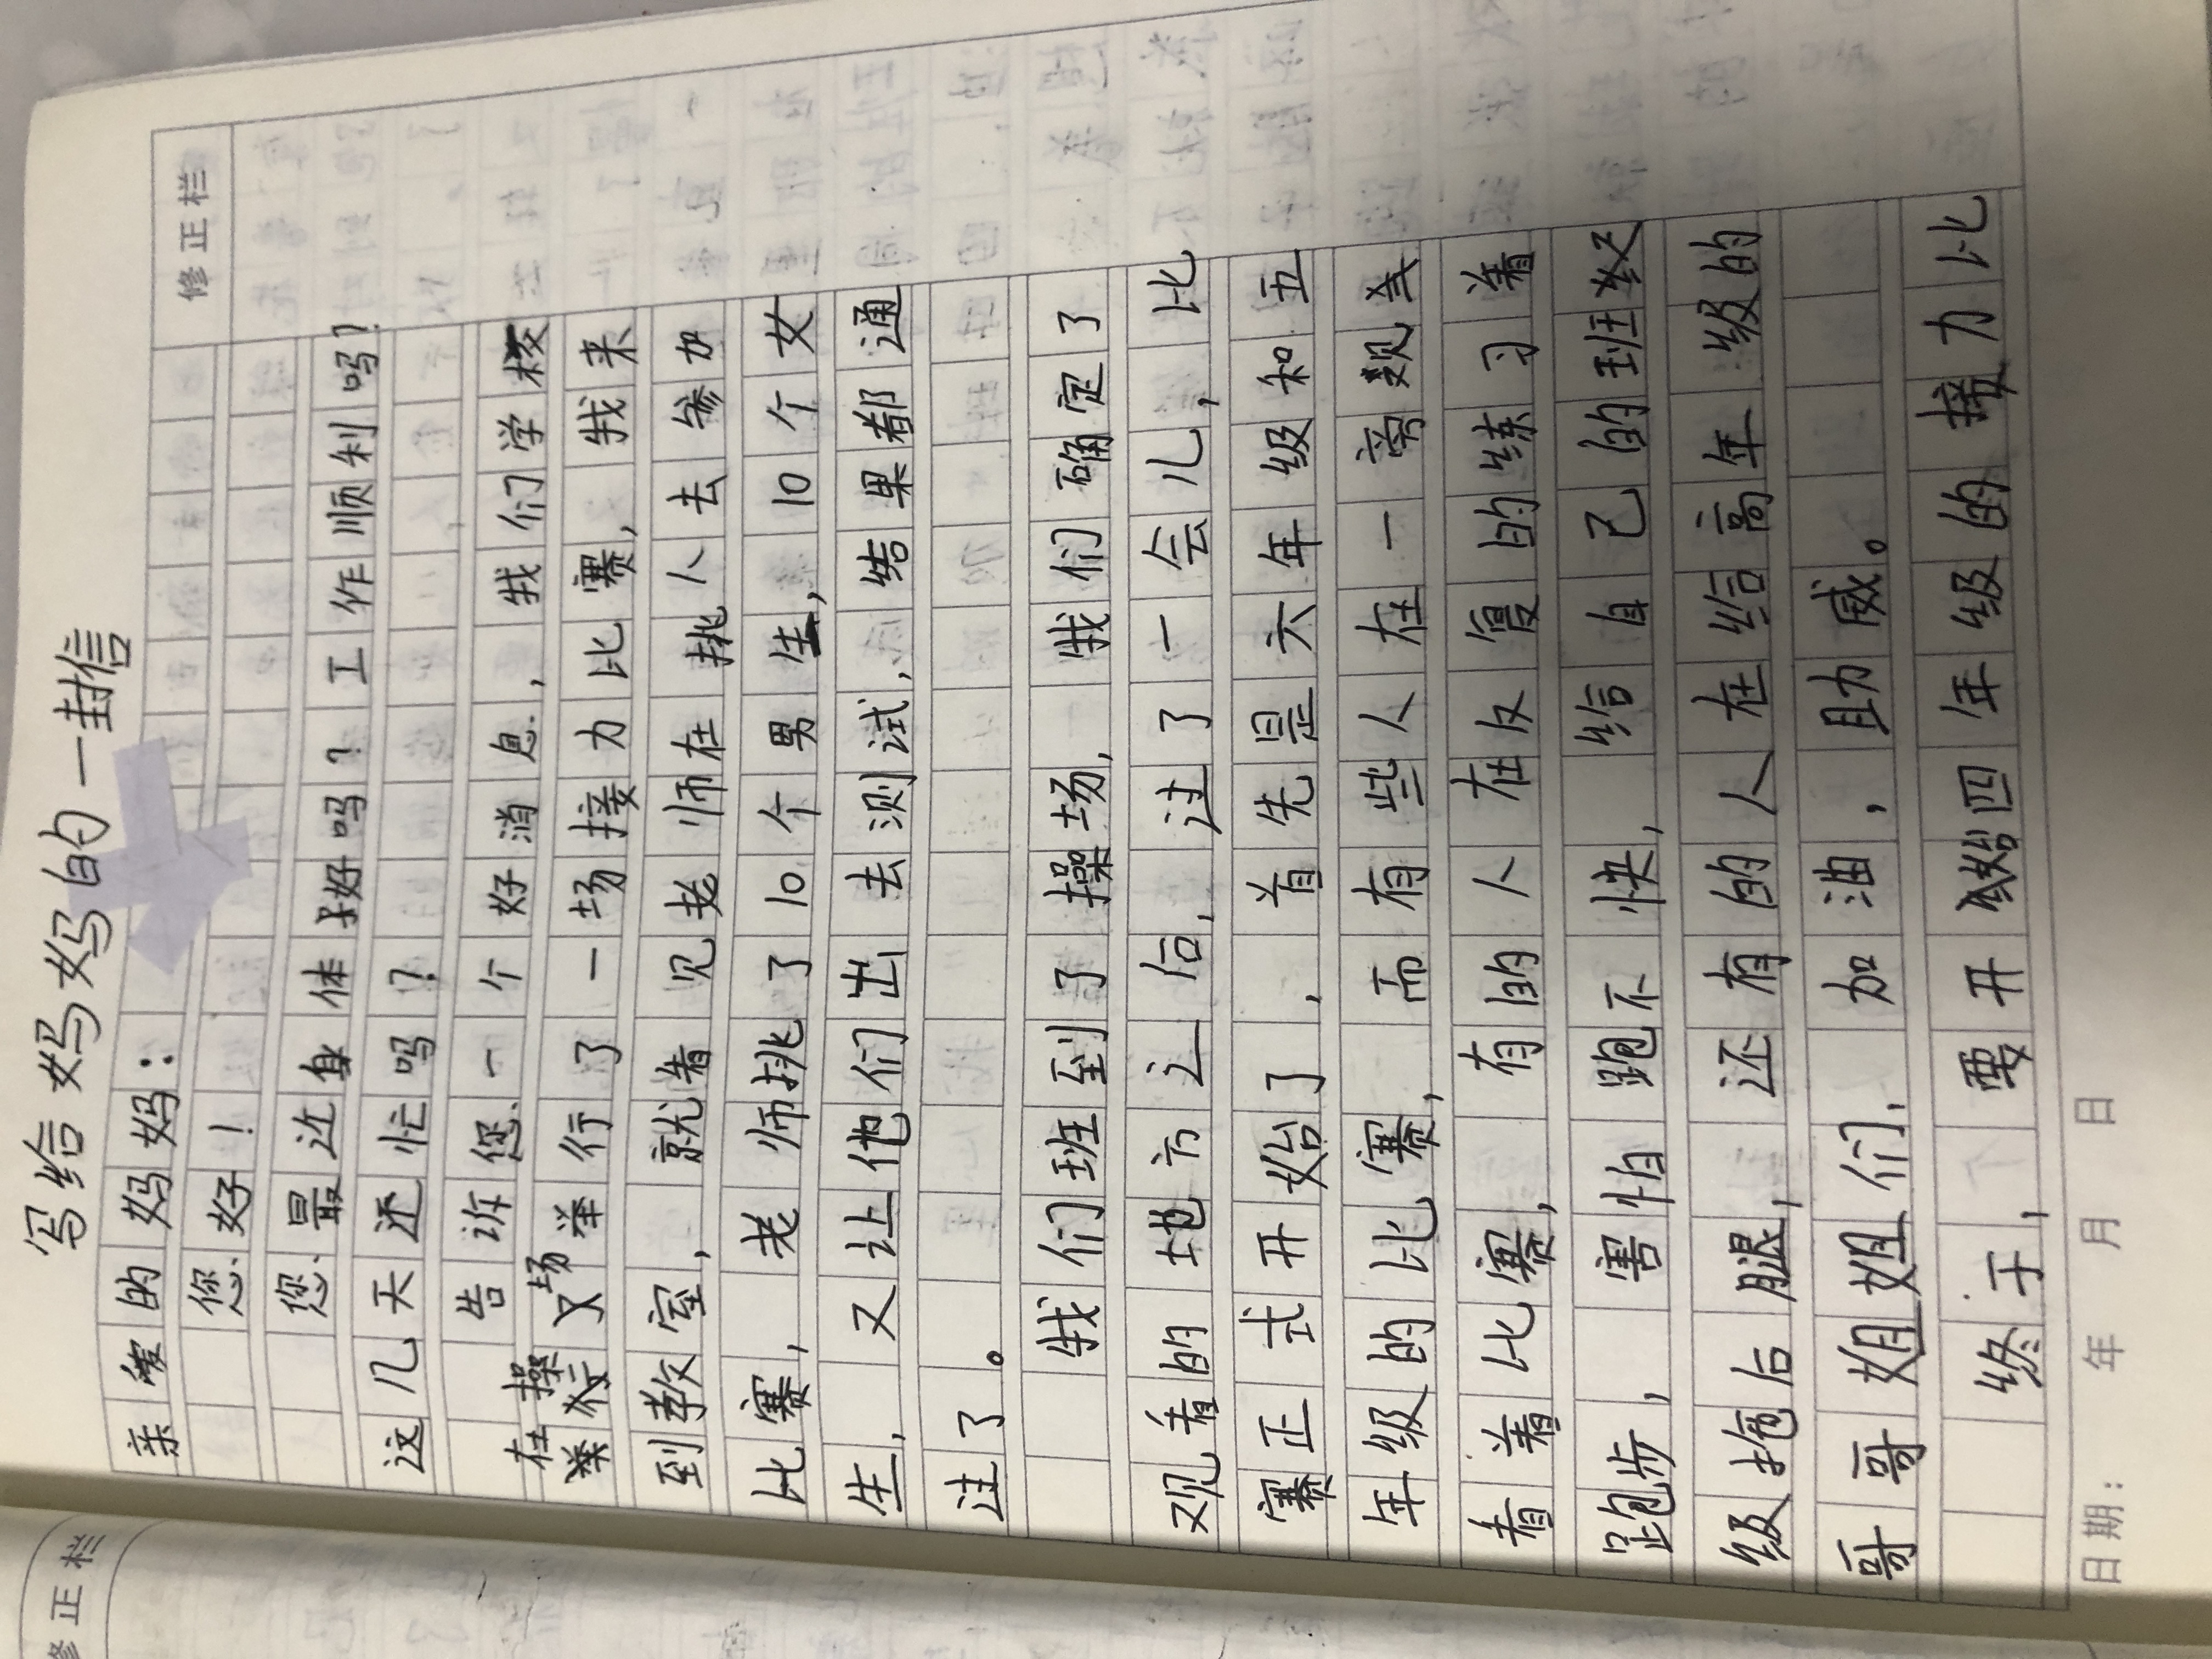 写给妈妈的一封信
修正栏
亲爱的妈妈:
您好!
您最近身体好吗?工作顺利吗?
这几天还忙吗?
告诉您一个好消息,我们学校
在操场
举行了一场接力比赛,我来
到教室,就看见老师在挑人去参加
比赛,老师挑了10个男生,10个女
生,又让他们出去测试,结果都通
过了。
我们班到了操场,我们确定了
观看的地方之后,过了一会儿,比
赛正式开始了,首先是六年级和五
年级的比赛,而有些人在一旁观
看着比赛,有的人在反复的练习着
跑步,害怕跑不快,给自己的班
级拖后腿,还有的人在给高年级的
哥哥姐姐们加油,助威。
终于,要开始四年级的接力比
日期: 年 月 日
修正栏